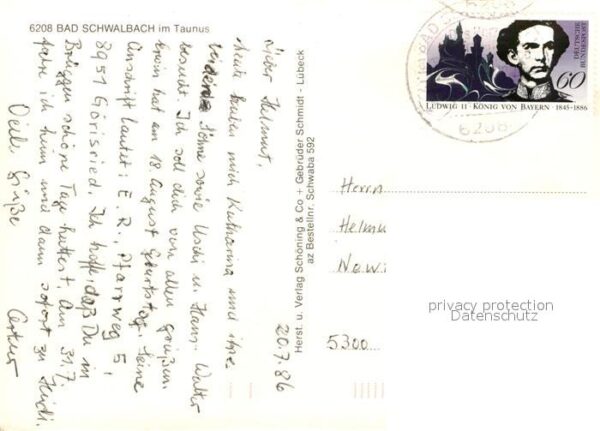 6208 BAD SCHWALBACH im Taunus
20.7.86
Lieber Helmut,
heute haben mich Katharina und ihre
beiden Söhne sowie Uschi u. Hans-Walter
besucht. Ich soll dich von allen grüßen.
Erwin hat am 18. August Geburtstag. Seine
Anschrift lautet: E. R., Pfarrweg 5,
8951 Görisried. Ich hoffe, daß Du in
Brüggen schöne Tage hattest. Am 31.7.
fahre ich heim und dann sofort zu Heidi.
Viele Grüße
Herst. u. Verlag Schöning & Co + Gebrüder Schmidt - Lübeck
az Bestellnr. Schwaba 592
DEUTSCHE
BUNDESPOST
60
LUDWIG II · KÖNIG VON BAYERN 1845-1886
6208
6208
Herrn
Helmu
5300
privacy protection
Datenschutz